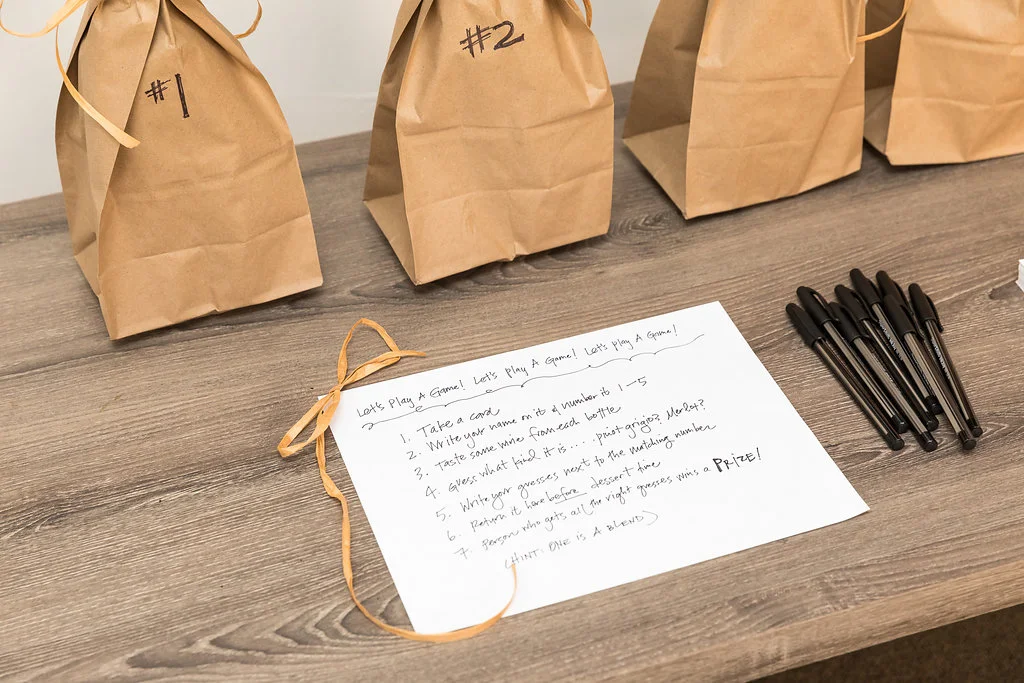 #1
#2
Let's Play A Game! Let's Play A Game! Let's Play A Game!
1. Take a card
2. Write your name on it & number it 1-5
3. Taste some wine from each bottle
4. Guess what kind it is..... pinot grigio? Merlot?
5. Write your guesses next to the matching number
6. Return it here before dessert time
7. Person who gets all the right guesses wins a PRIZE!
(HINT: ONE IS A BLEND)